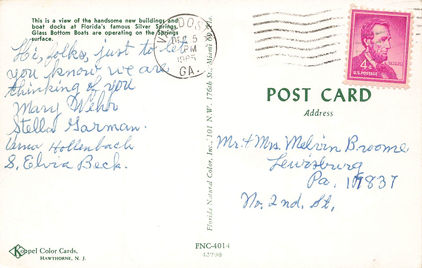 This is a view of the handsome new buildings and
boat docks at Florida's famous Silver Springs.
Glass Bottom Boats are operating on the Springs
surface.
Hi, folks, just to let
you know we are
thinking of you
Mary
Stella Garman.
Hollenbach
S. Elvia Beck.
Koppel Color Cards,
HAWTHORNE, N. J.
Florida Natural Color, Inc., 101 N.W. 176th St., Miami
FNC-4014
DEC 5
PM
1965
GA.
4¢
U.S. POSTAGE
POST CARD
Address
Mr. & Mrs. Melvin Broome
Lewisburg
Pa. 17837
No. 2nd. St,